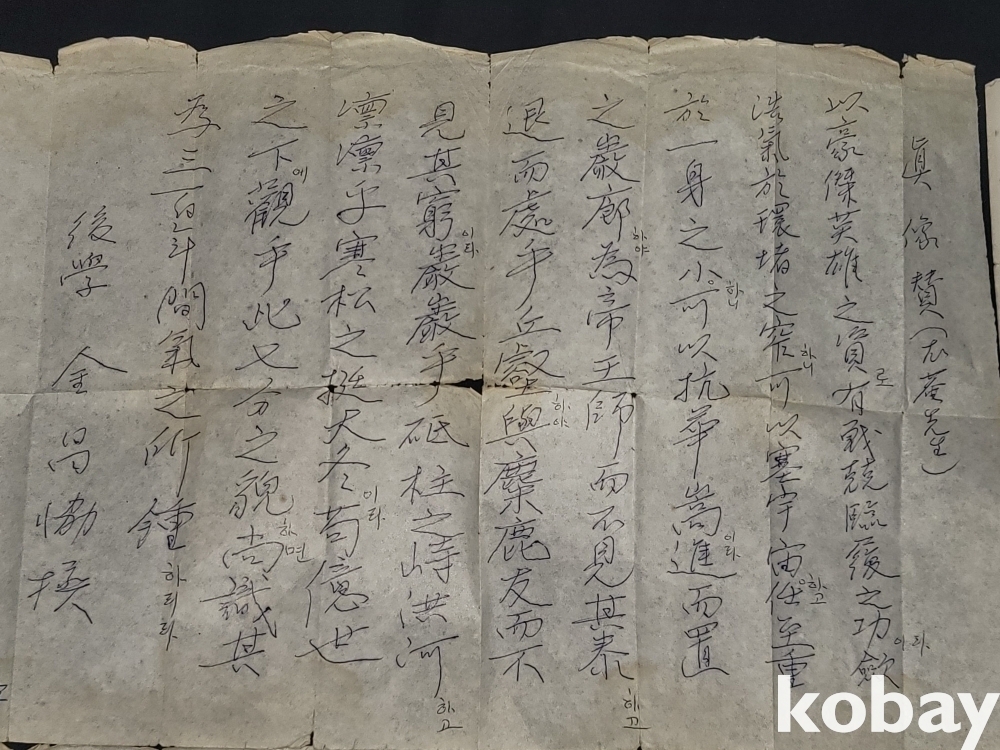 眞像贊(尤菴先生)
以豪傑英雄之資로有戰兢臨履之功이라斂
浩氣於環堵之窄하니可以塞宇宙하고任至重
於一身之小하니可以抗華嵩이라進而置
之巖廊하야為帝王師而不見其泰하고
退而處乎丘壑하야與麋鹿友而不
見其窮이라巖巖乎砥柱之峙洪河하고
凛凛乎寒松之挺大冬이라苟億世
之下에觀乎此七分之貌하면尚識其
為三百年間氣之所鍾하리라
後學 金昌協 撰
kobay